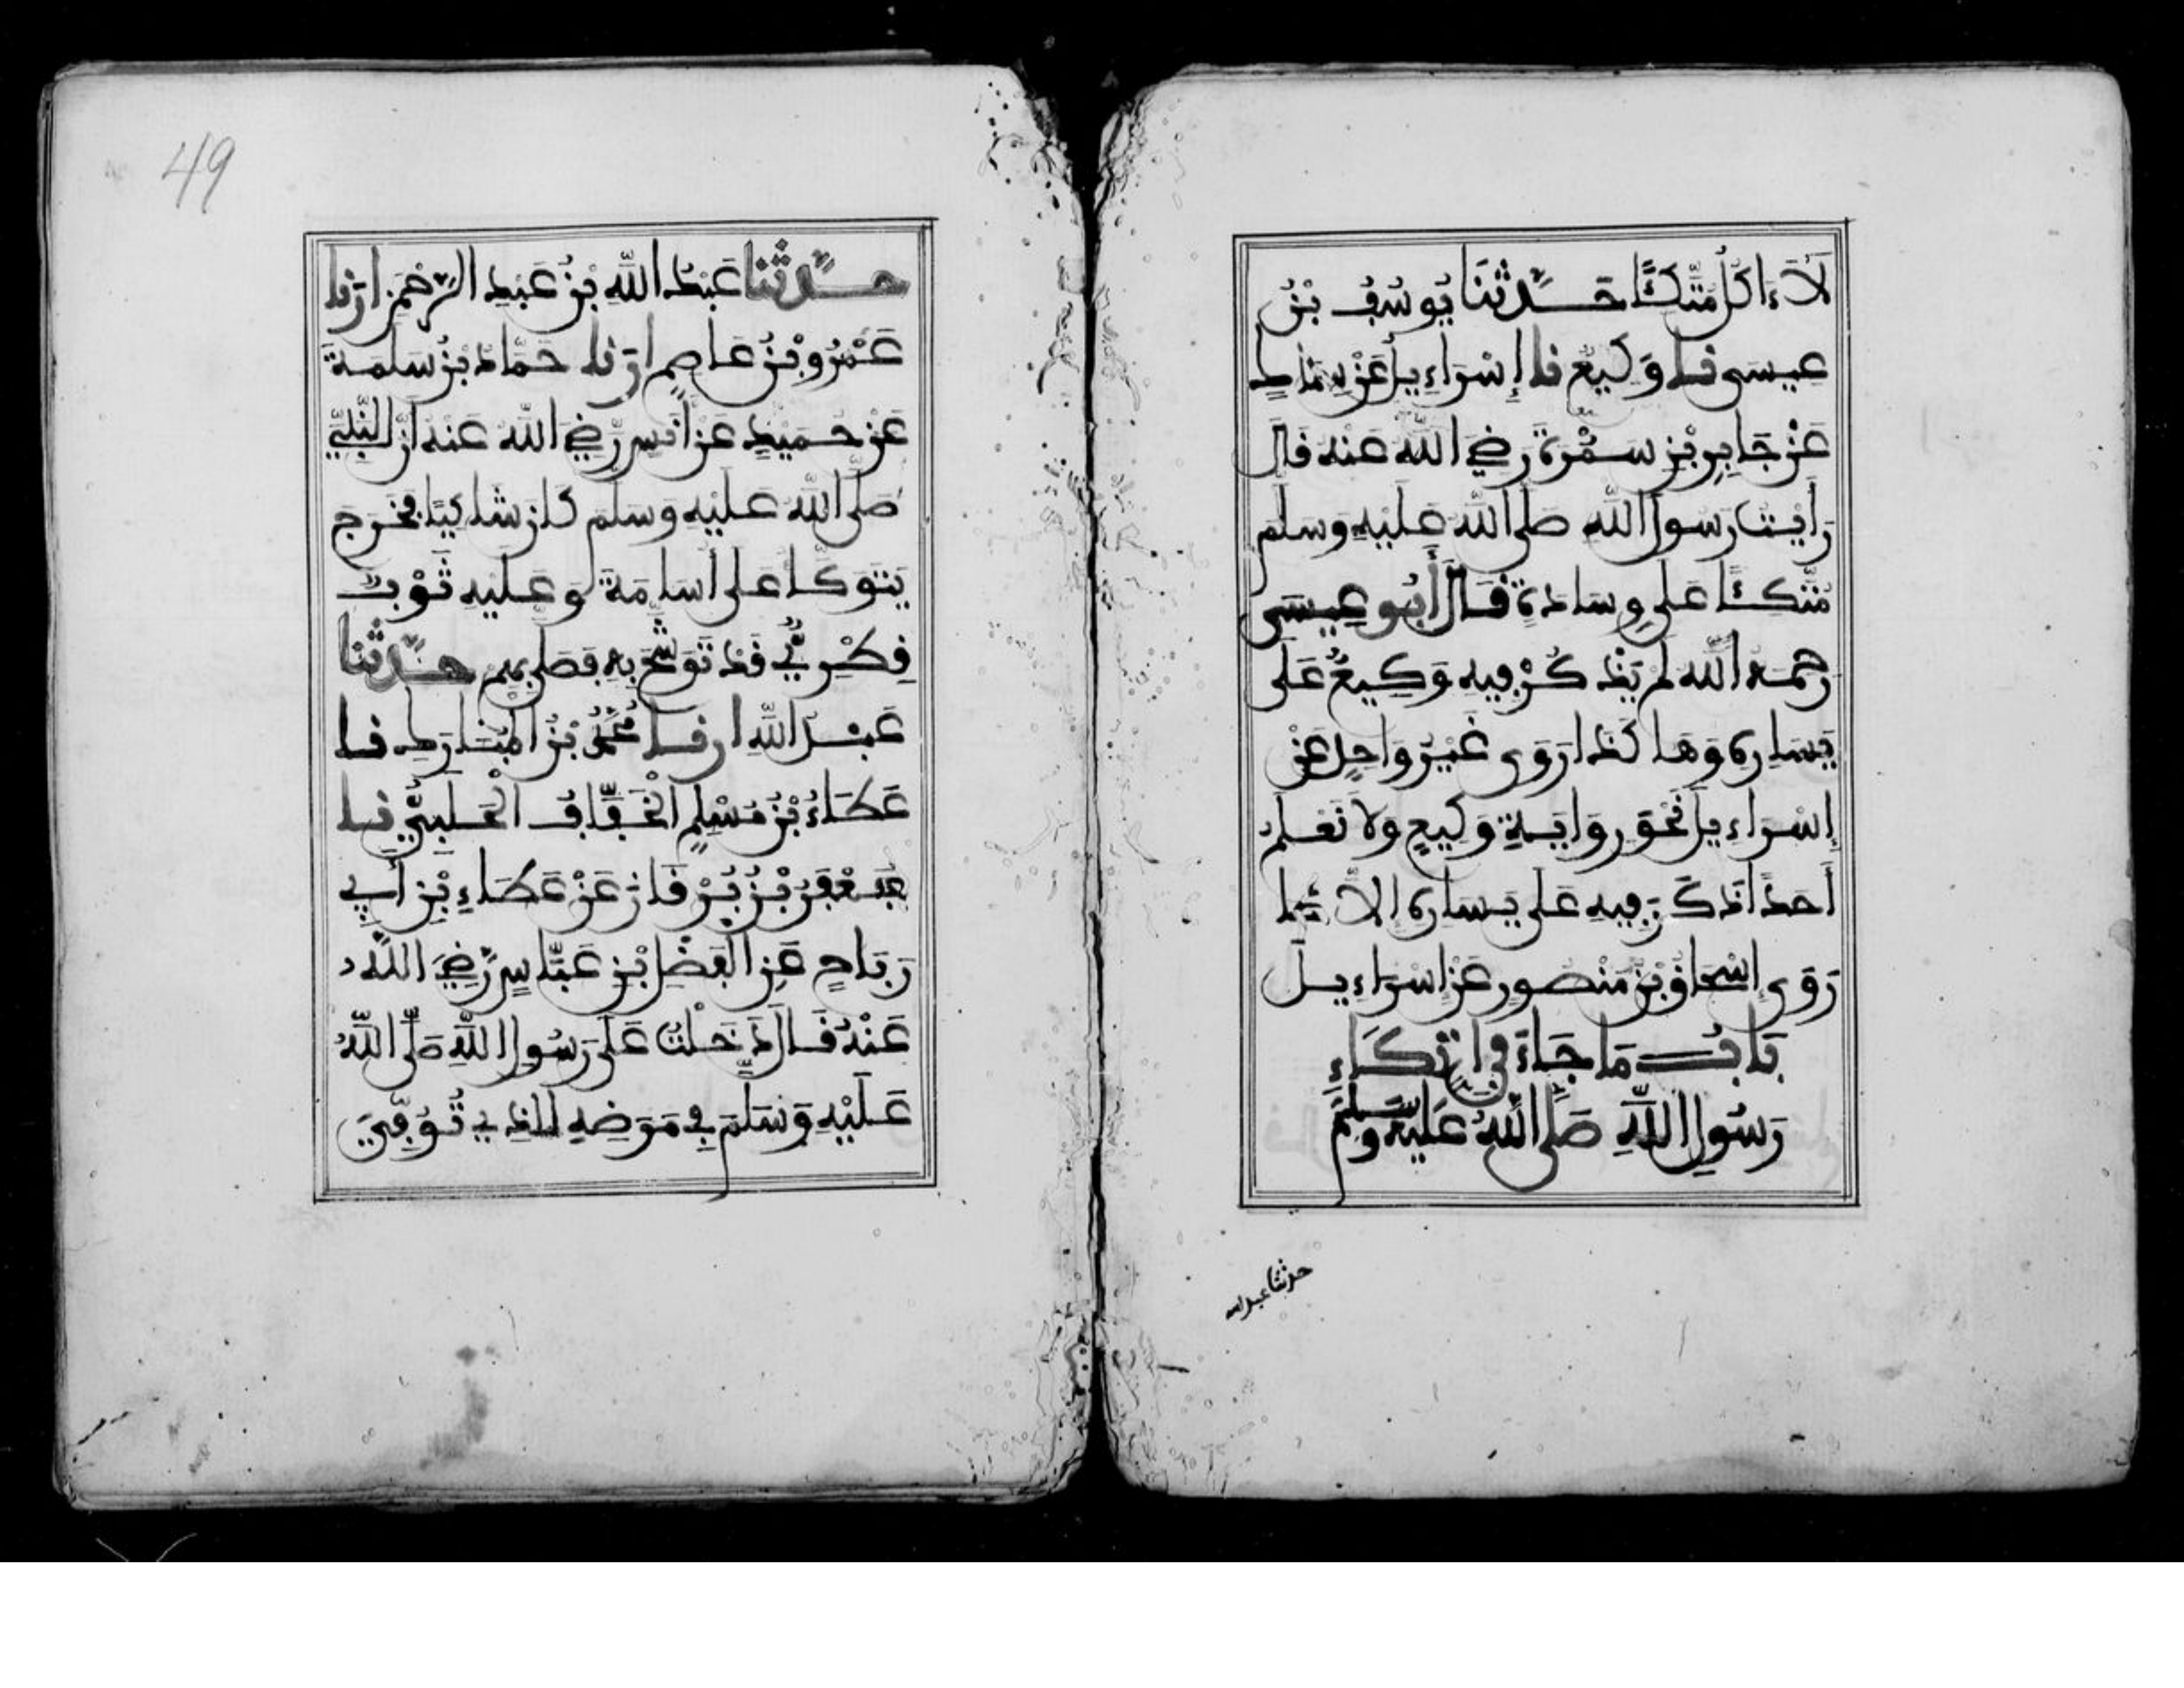 لَا ءَاكُلُ مُتَّكِئًا حَدَّثَنَا يُوسُفُ بْنُ
عِيسَى نَا وَكِيعٌ نَا إِسْرَاءِيلُ عَنْ سِمَاطِ
عَنْ جَابِرِ بْنِ سَمُرَةَ رَضِيَ اللَّهُ عَنْهُ قَالَ
رَأَيْتُ رَسُولَ اللَّهِ صَلَّى اللَّهُ عَلَيْهِ وَسَلَّمَ
مُتَّكِئًا عَلَى وِسَادَةٍ قَالَ أَبُو عِيسَى
رَحِمَهُ اللَّهُ لَمْ يَذْكُرْ فِيهِ وَكِيعٌ عَلَى
يَسَارِهِ وَهَاكَذَا رَوَى غَيْرُ وَاحِدٍ عَنْ
إِسْرَاءِيلَ نَحْوَ رِوَايَةِ وَكِيعٍ وَلَا نَعْلَمُ
أَحَدًا ذَكَرَ فِيهِ عَلَى يَسَارِهِ إِلَّا مَا
رَوَى إِسْحَاقُ بْنُ مَنْصُورٍ عَنْ إِسْرَاءِيلَ
بَابُ مَا جَاءَ فِي اتِّكَاءِ
رَسُولِ اللَّهِ صَلَّى اللَّهُ عَلَيْهِ وَسَلَّمَ
حدثنا عبد الله
49
حَدَّثَنَا عَبْدُ اللَّهِ بْنُ عَبْدِ الرَّحْمَنِ أَرَنَا
عَمْرُو بْنُ عَاصِمٍ أَرَنَا حَمَّادُ بْنُ سَلَمَةَ
عَنْ حُمَيْدٍ عَنْ أَنَسٍ رَضِيَ اللَّهُ عَنْهُ أَنَّ النَّبِيَّ
صَلَّى اللَّهُ عَلَيْهِ وَسَلَّمَ كَانَ شَاكِيًا فَخَرَجَ
يَتَوَكَّأُ عَلَى أُسَامَةَ وَعَلَيْهِ ثَوْبٌ
قِطْرِيٌّ قَدْ تَوَشَّحَ بِهِ فَصَلَّى بِهِمْ حَدَّثَنَا
عَبْدُ اللَّهِ أرنا مُحَمَّدُ بْنُ الْمُبَارَكِ نَا
عَطَاءُ بْنُ مُسْلِمٍ الْخَفَّافُ الْحَلَبِيُّ نَا
جَعْفَرُ بْنُ بُرْقَانَ عَنْ عَطَاءِ بْنِ أَبِي
رَبَاحٍ عَنِ الْفَضْلِ بْنِ عَبَّاسٍ رَضِيَ اللَّهُ
عَنْهُ قَالَ دَخَلْتُ عَلَى رَسُولِ اللَّهِ صَلَّى اللَّهُ
عَلَيْهِ وَسَلَّمَ فِي مَرَضِهِ الذِي تُوُفِّيَ